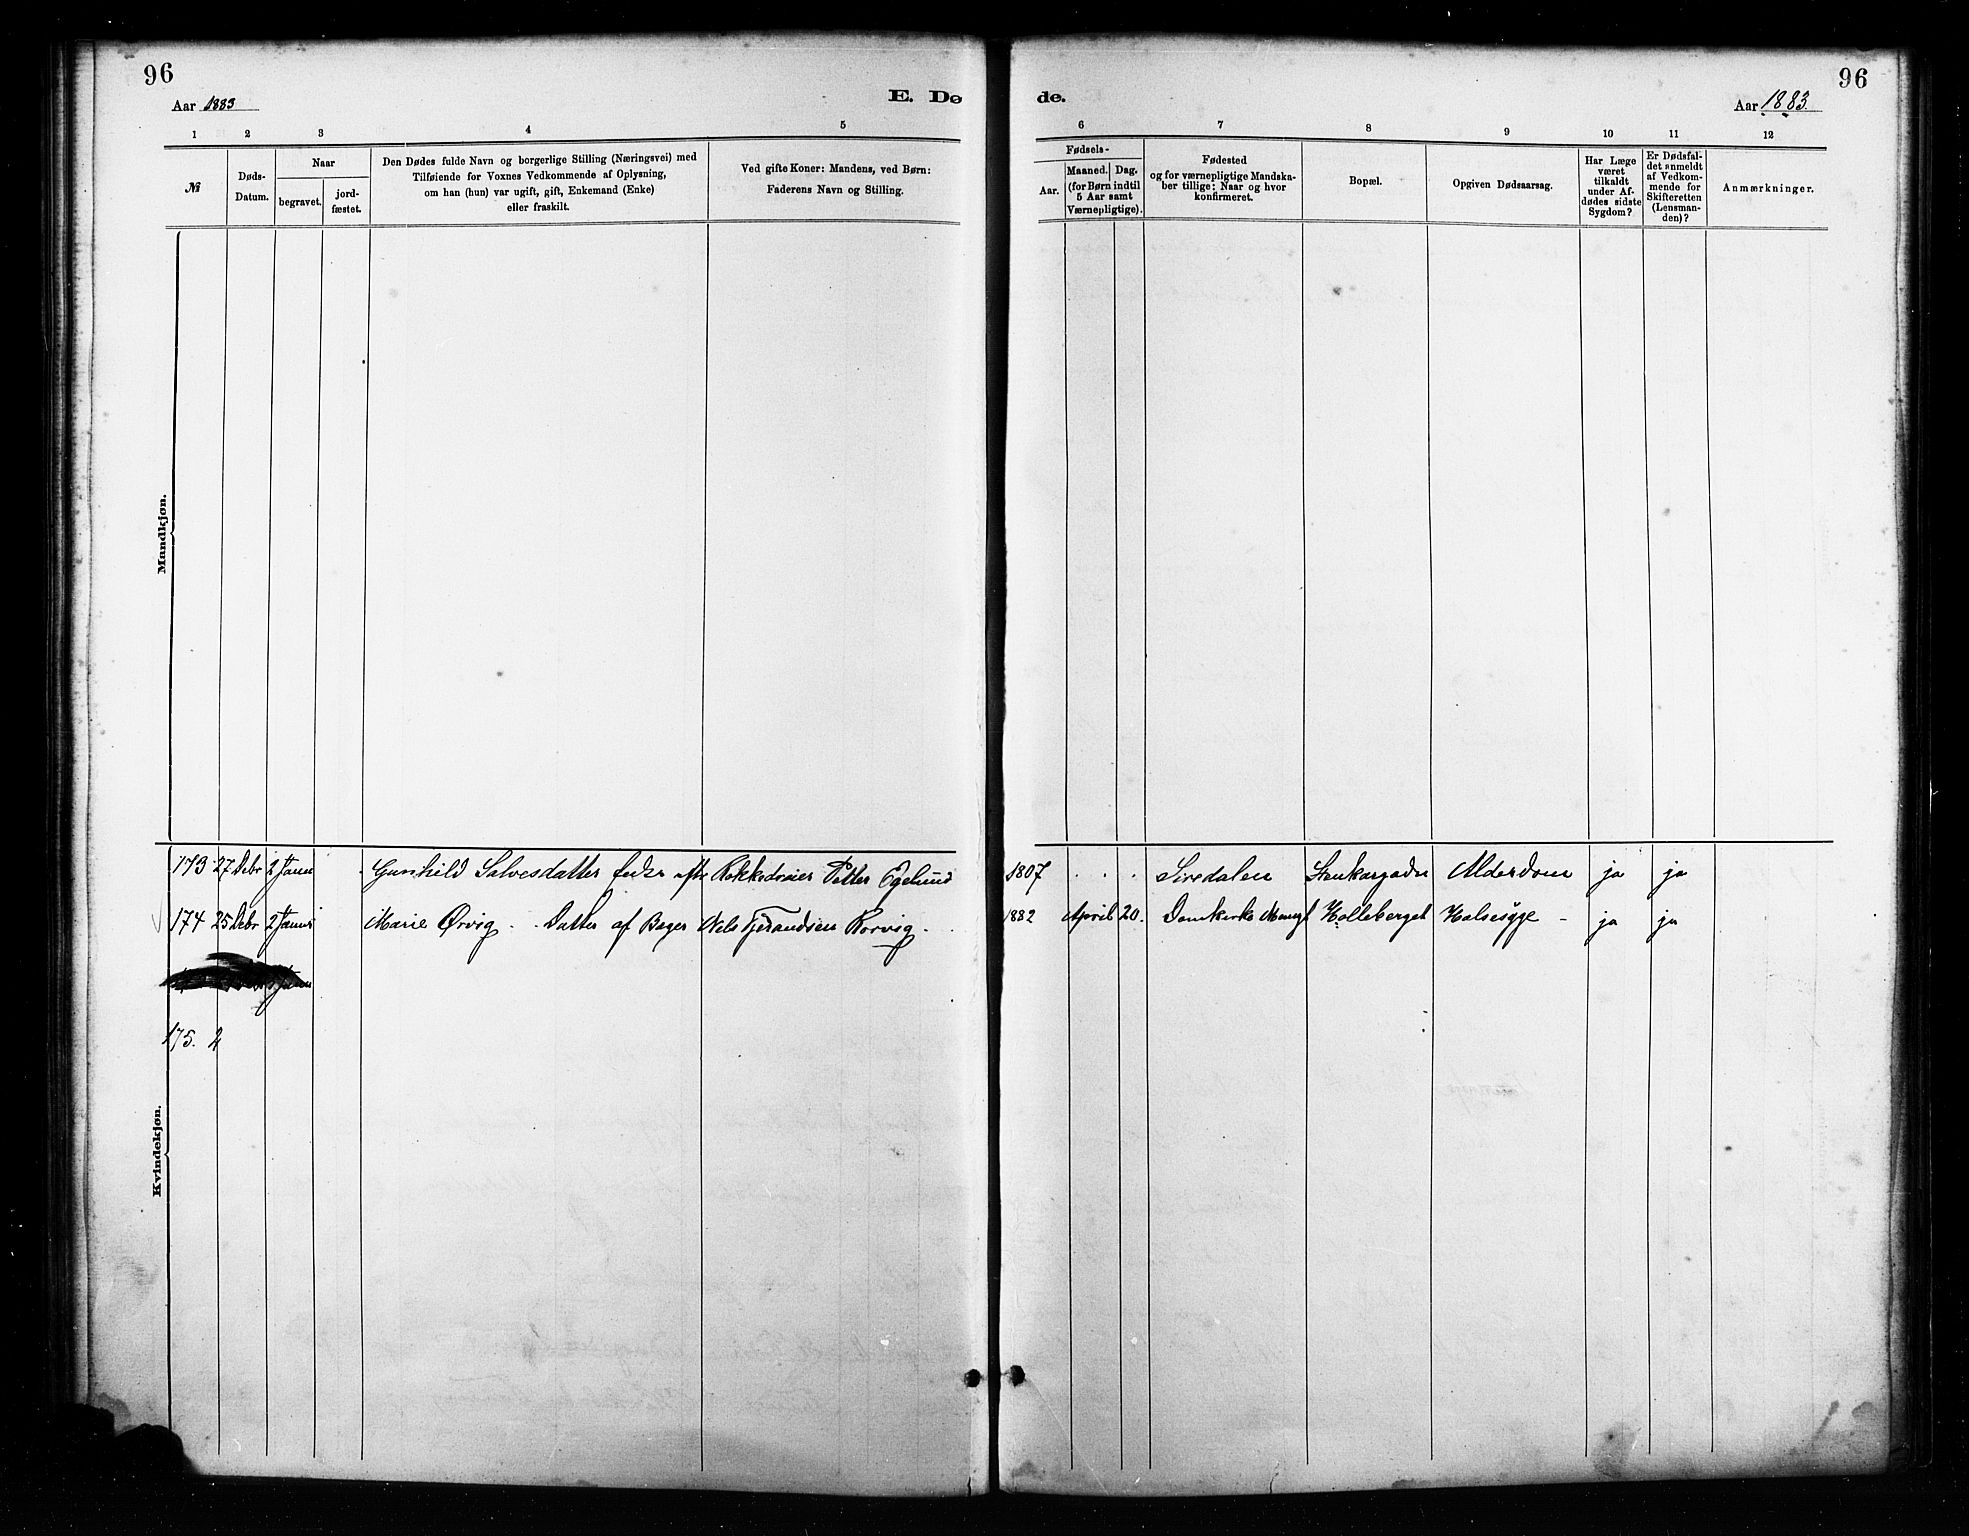 96
Aar 1883
E. Dø
de.
96
Aar 1883.
1 2 3 4 5
6 7 8 9 10 11 12
№
Døds-
Datum.
Naar
begravet.
jord-
fæstet.
Den Dødes fulde Navn og borgerlige Stilling (Næringsvei) med
Tilføiende for Voxnes Vedkommende af Oplysning,
om han (hun) var ugift, gift, Enkemand (Enke)
eller fraskilt.
Ved gifte Koner: Mandens, ved Børn:
Faderens Navn og Stilling.
Fødsels-
Aar.
Maaned. Dag.
(for Børn indtil
5 Aar samt
Værnepligtige).
Fødested
og for værnepligtige Mandska-
ber tillige: Naar og hvor
konfirmeret.
Bopæl.
Opgiven Dødsaarsag.
Har Læge
været
tilkaldt
under Af-
dødes sidste
Sygdom?
Er Dødsfal-
det anmeldt
af Vedkom-
mende for
Skifteretten
(Lensman-
den)?
Anmærkninger.
Mandkjøn.
173 27 Debr 2 Janu Gunhild Salvesdatter Petter Egelund 1807 . . . Siredalen Alderdom ja ja
174 25 Debr 2 Janu Marie Ørvig - Datter af Bager Nels Rorvig. 1882 April 20. Domkirke Holleberget Halsesyge - ja ja
175. 2
Kvindekjøn.